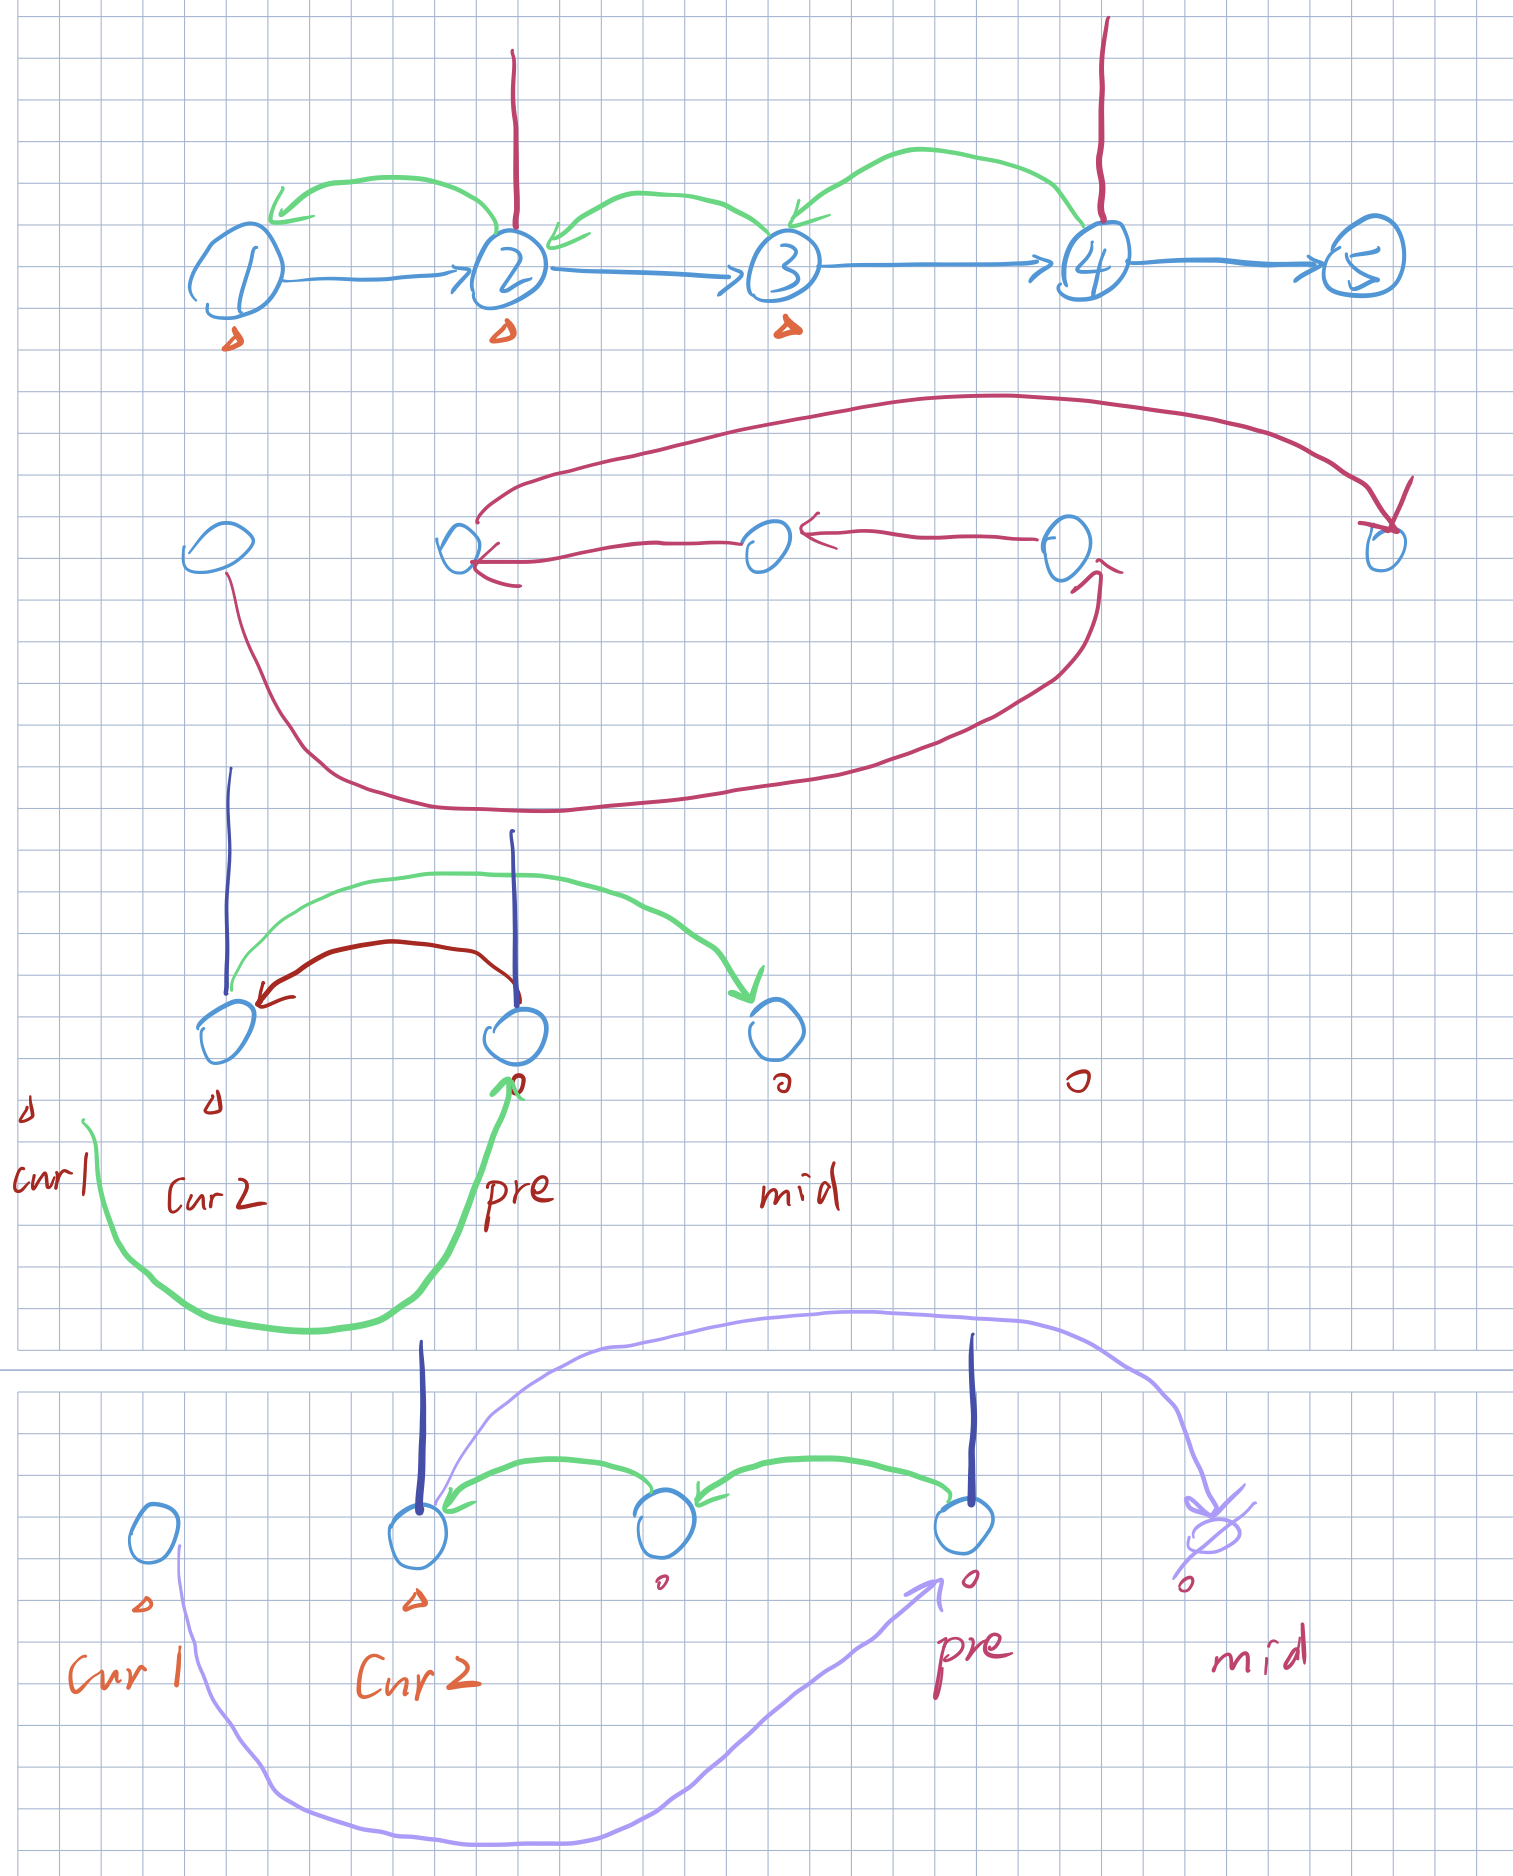 1 2 3 4 5
cur1 Cur2 pre mid
Cur1 Cur2 pre mid